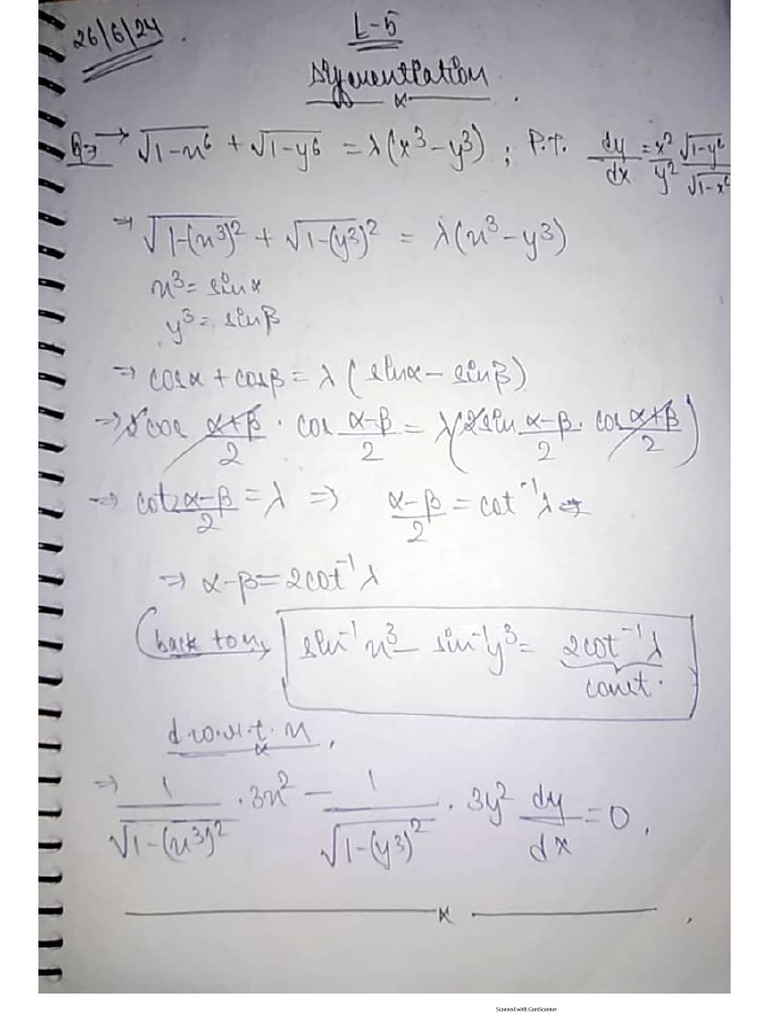 26/6/24
L-5
Q→ → √1-x⁶ + √1-y⁶ = λ(x³-y³) ; P.T. dy/dx = x²/y² √1-y⁶/√1-x⁶
→ √1-(x³)² + √1-(y³)² = λ(x³-y³)
x³ = sinα
y³ = sinβ
→ cosα + cosβ = λ (sinα - sinβ)
→ 2cos α+β/2 · cos α-β/2 = λ(2sin α-β/2 · cos α+β/2)
→ cot α-β/2 = λ ⇒ α-β/2 = cot⁻¹λ
⇒ α-β = 2cot⁻¹λ
(back to x, sin⁻¹x³ - sin⁻¹y³ = 2cot⁻¹λ
const.
d.w.r.t. x,
⇒ 1/√1-(x³)² · 3x² - 1/√1-(y³)² · 3y² dy/dx = 0.
Scanned with CamScanner